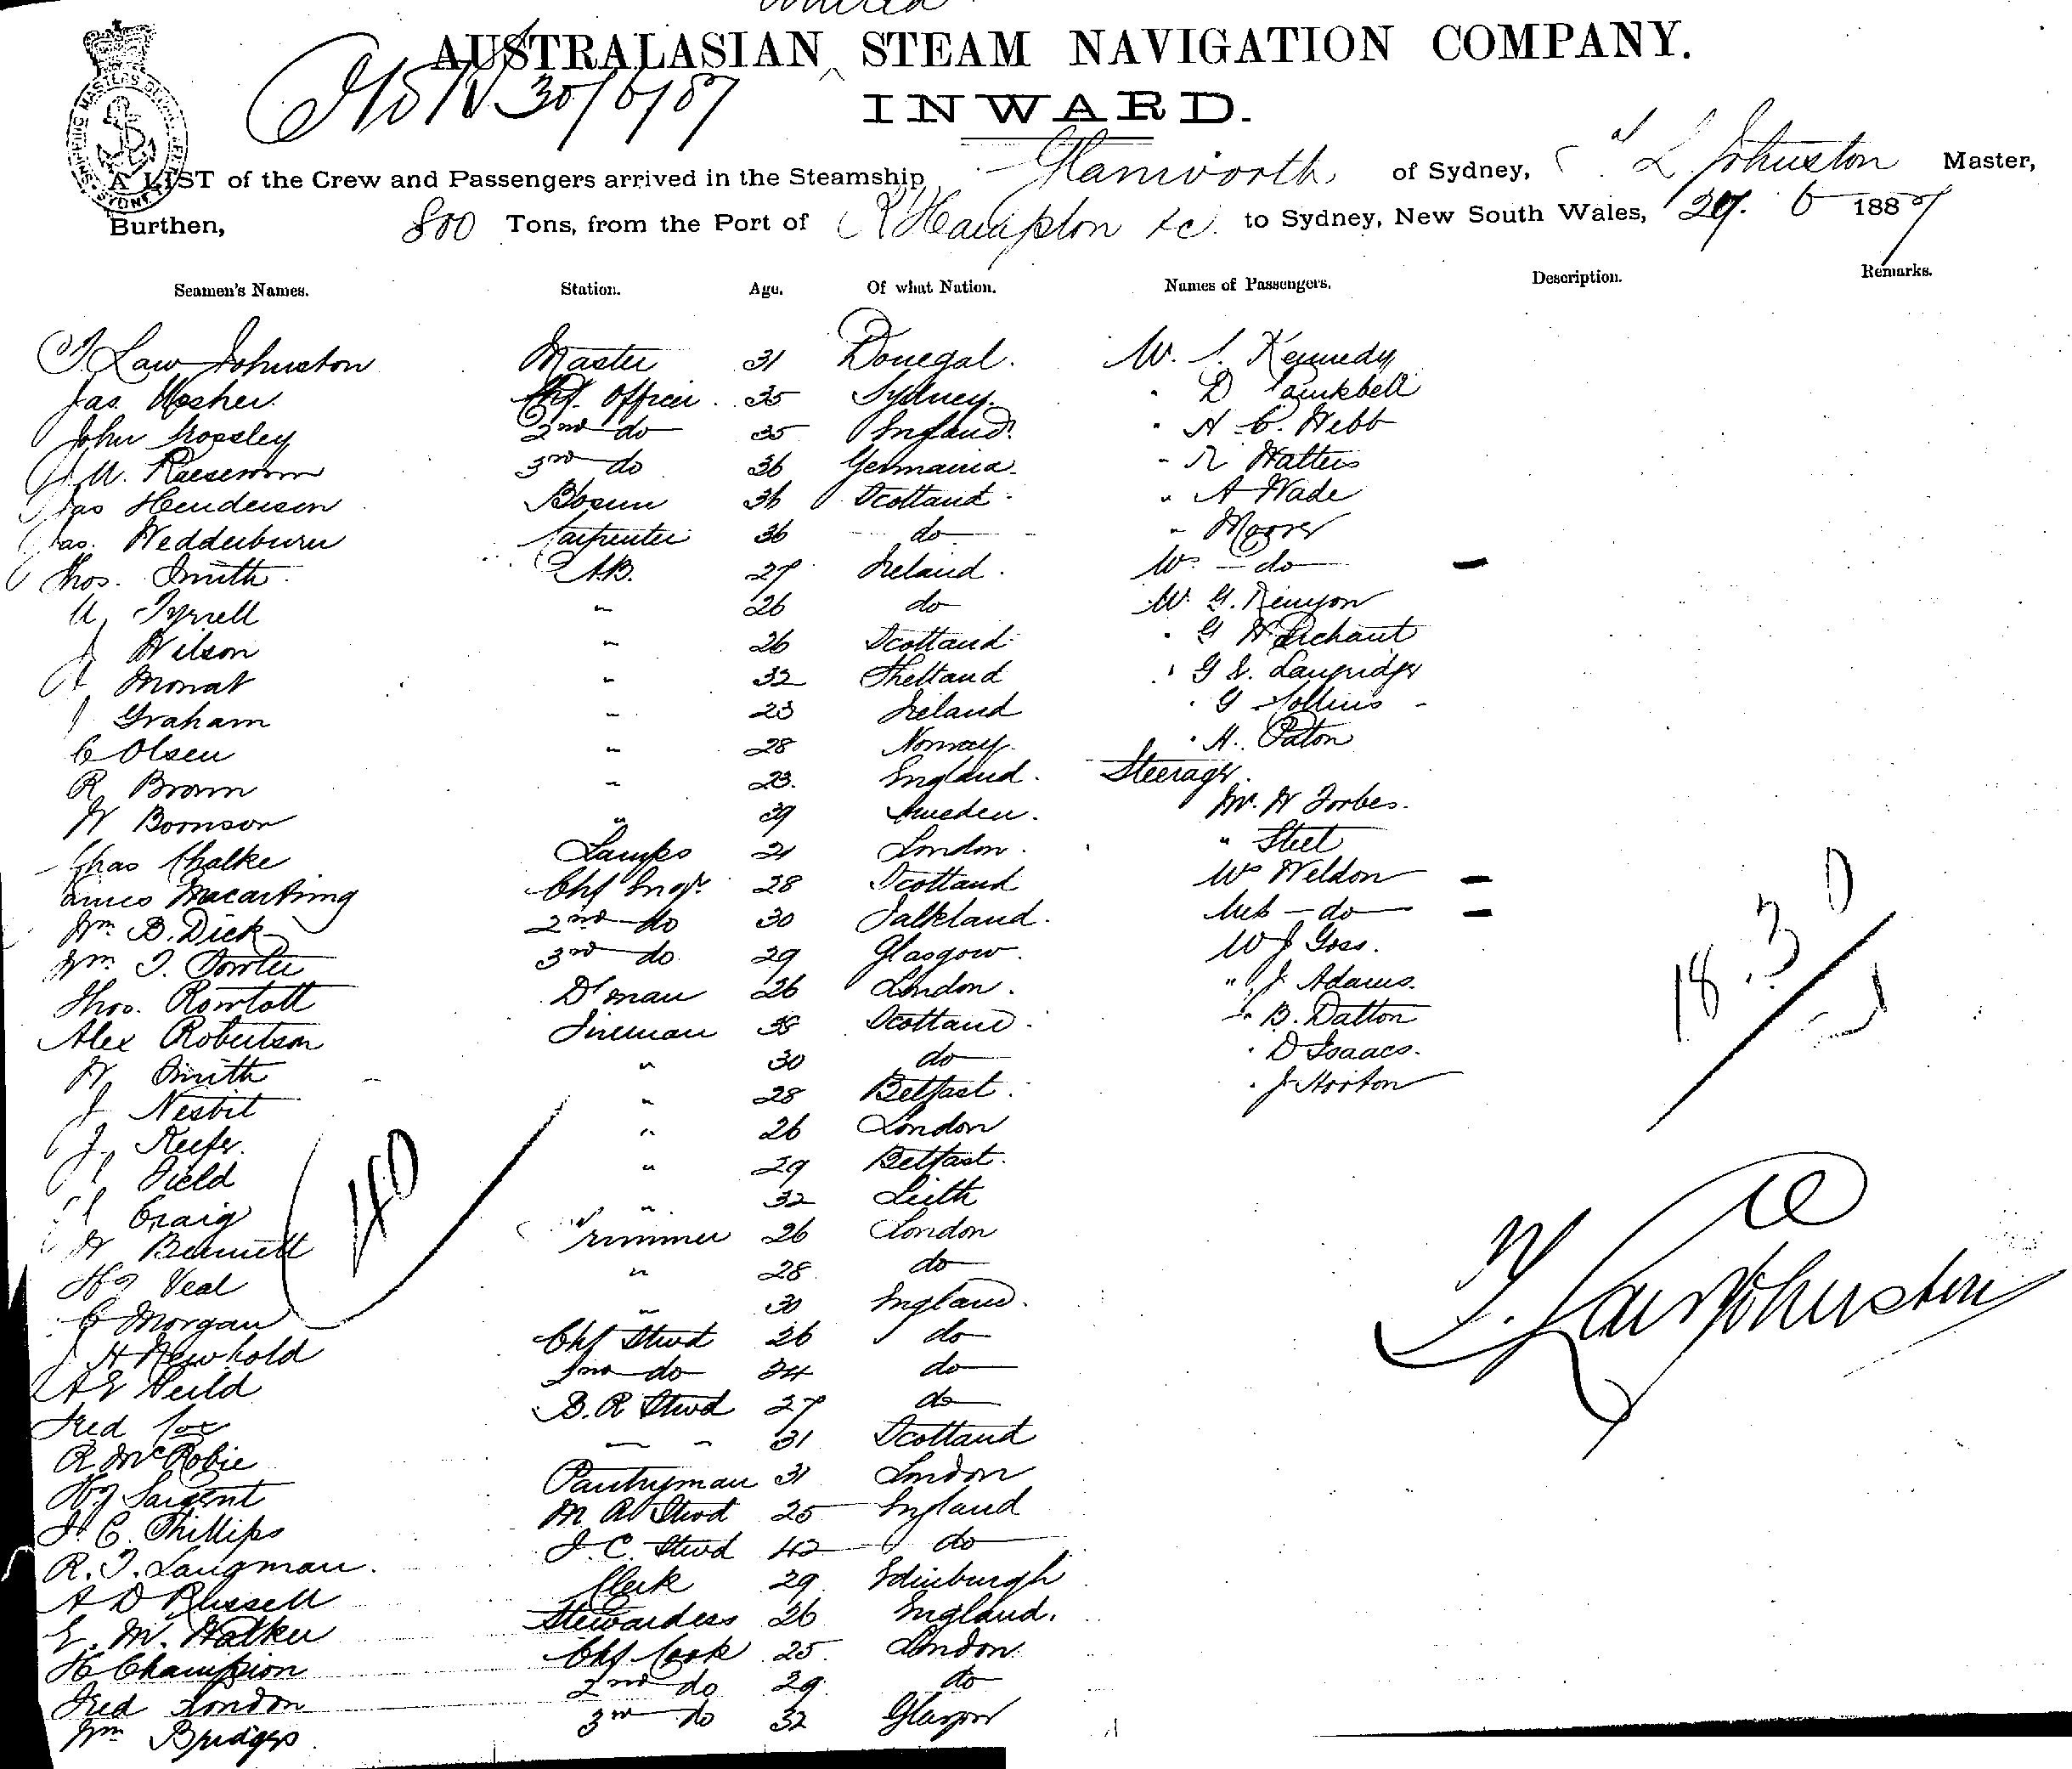 United
AUSTRALASIAN ^ STEAM NAVIGATION COMPANY.
30/6/87
INWARD.
SHIPPING MASTERS OFFICE SYDNEY
A LIST of the Crew and Passengers arrived in the Steamship Glanworth of Sydney, T L Johnston Master,
Burthen, 800 Tons, from the Port of R'Hampton &c. to Sydney, New South Wales, 29. 6 1887
Seamen's Names. Station. Age. Of what Nation. Names of Passengers. Description. Remarks.
T Law Johnston Master 31 Donegal. Mr. Kennedy
Jas. Mosher. Chf. Officer. 35 Sydney. " D Campbell
John Crossley 2nd do 35 England. " H. C. Webb
3rd do 36 Germania. " R Walters
Jas Henderson Bosun 36 Scotland. " A Wade
Jas. Wedderburn Carpenter 36 do " Moore
Thos. Smith A.B. 27 Ireland. Mrs. do
M Tyrrell " 26 do Mr. G. Kenyon
J Wilson " 26 Scotland " G
J Monat " 32 Shetland " G S. Langridge
J Graham " 23 Ireland " G Collins
C Olsen " 28 Norway. " H. Paton
R Brown " 23. England. Steerage.
W Boornson " 39 Sweden. Mr. W Forbes.
Chas Chalke Lamps 21 London. " Steel
James Macartney Chf Engr. 28 Scotland Mrs Weldon
Wm B. Dick 2nd do 30 Falkland. Miss do
Wm T. Fowler 3rd do 29 Glasgow. Mr J Goss.
Thos. Rowlatt D'man 26 London. " J Adams.
Alex Robertson Fireman 38 Scotland. " B. Dalton
W Smith " 30 do " D Isaacs.
J Nesbit " 28 Belfast. " J Horton
J. Keefe. " 26 London
J Field " 29 Belfast.
J Craig " 32 Leith
W Bennett Trimmer 26 London
Hy Veal " 28 do
C Morgan " 30 England.
J H Newbold Chf Stwd 26 do
A E Heild 2nd do 34 do
Fred Cox B. R Stwd 27 do
R McRobie " " 31 Scotland
Hy Sargent Pantryman 31 London
J. C. Phillips M. R. Stwd 25 England
R. T. Langman. F. C. Stwd 42 do
A D Russell Clerk 29 Edinburgh
E. M. Walker Stewardess 26 England.
H Champion Chf Cook 25. London
Fred London 2nd do 29 do
Wm Bridges 3rd do 32 Glasgow
40
18.3
T. Law Johnston